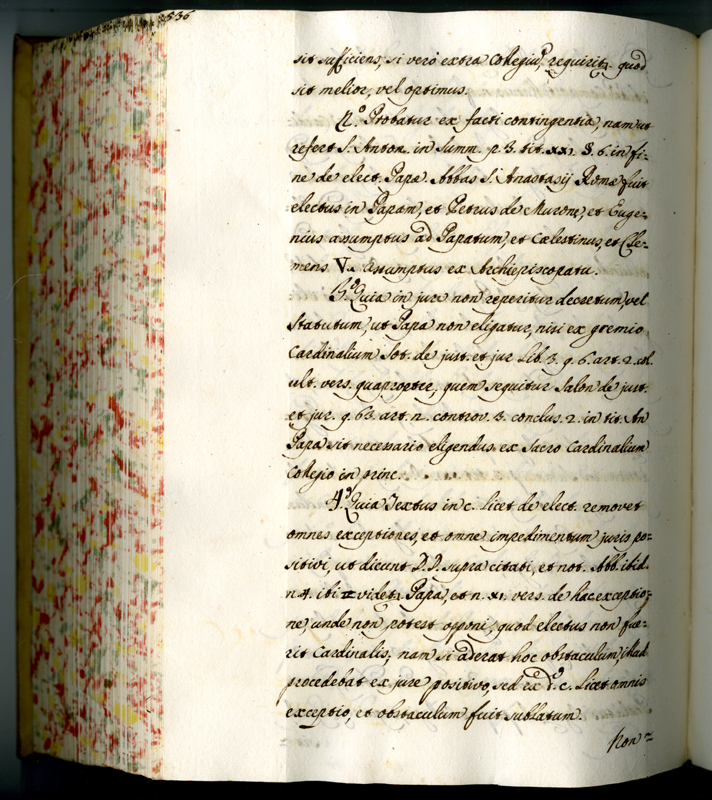 536
sit sufficiens, si vero extra Collegiũ, requiritr. quod
sit melior, vel optimus.
2.º Probatur ex facti contingentia, nam ut
refert S. Anton. in Summ. p. 3. tit. XXI. §. 6. in fi-
ne de elect. Papæ. Abbas S. Anastasij Romæ fuit
electus in Papam, et Petrus de Murone, et Euge-
nius assumptus ad Papatum, et Cælestinus, et Cle-
mens V. assumptus ex Archiepiscopatu.
3.º Quia in jure non reperitur decretum, vel
Statutum, ut Papa non eligatur, nisi ex gremio
Cardinalium Sot. de just. et jur. Lib. 3. q. 6. art. 2. col.
ult. vers. quapropter, quem sequitur Salon de just.
et jur. q. 63. art. 2. controv. 3. conclus. 2. in tit. An
Papa sit necessario eligendus ex Sacro Cardinalium
Collegio in princ.
4.º Quia Textus in c. Licet de elect. removet
omnes exceptiones, et omne impedimentum juris po-
sitivi, ut dicunt D.D. supra citati, et not. Abb. ibid.
n. 4. ibi videtr. Papa, et n. XI. vers. de hac exceptio-
ne, unde non potest opponi, quod electus non fue-
rit Cardinalis, nam si aderat hoc obstaculum, illud
procedebat ex jure positivo, sed ex d.º c. Licet omnis
exceptio, et obstaculum fuit sublatum.
Non